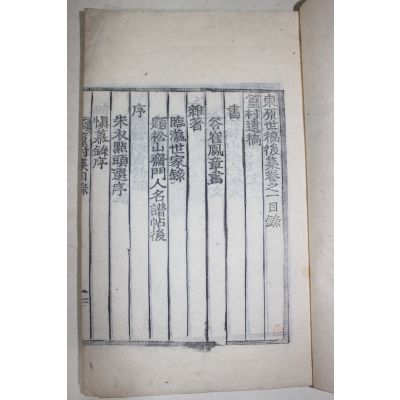 東原世稿後集卷之一目錄
篁村遺稿
書
答崔鳳章書
雜著
臨瀛世家錄
題松山齋門人名譜帖後
序
朱衣點頭選序
愼慕錄序